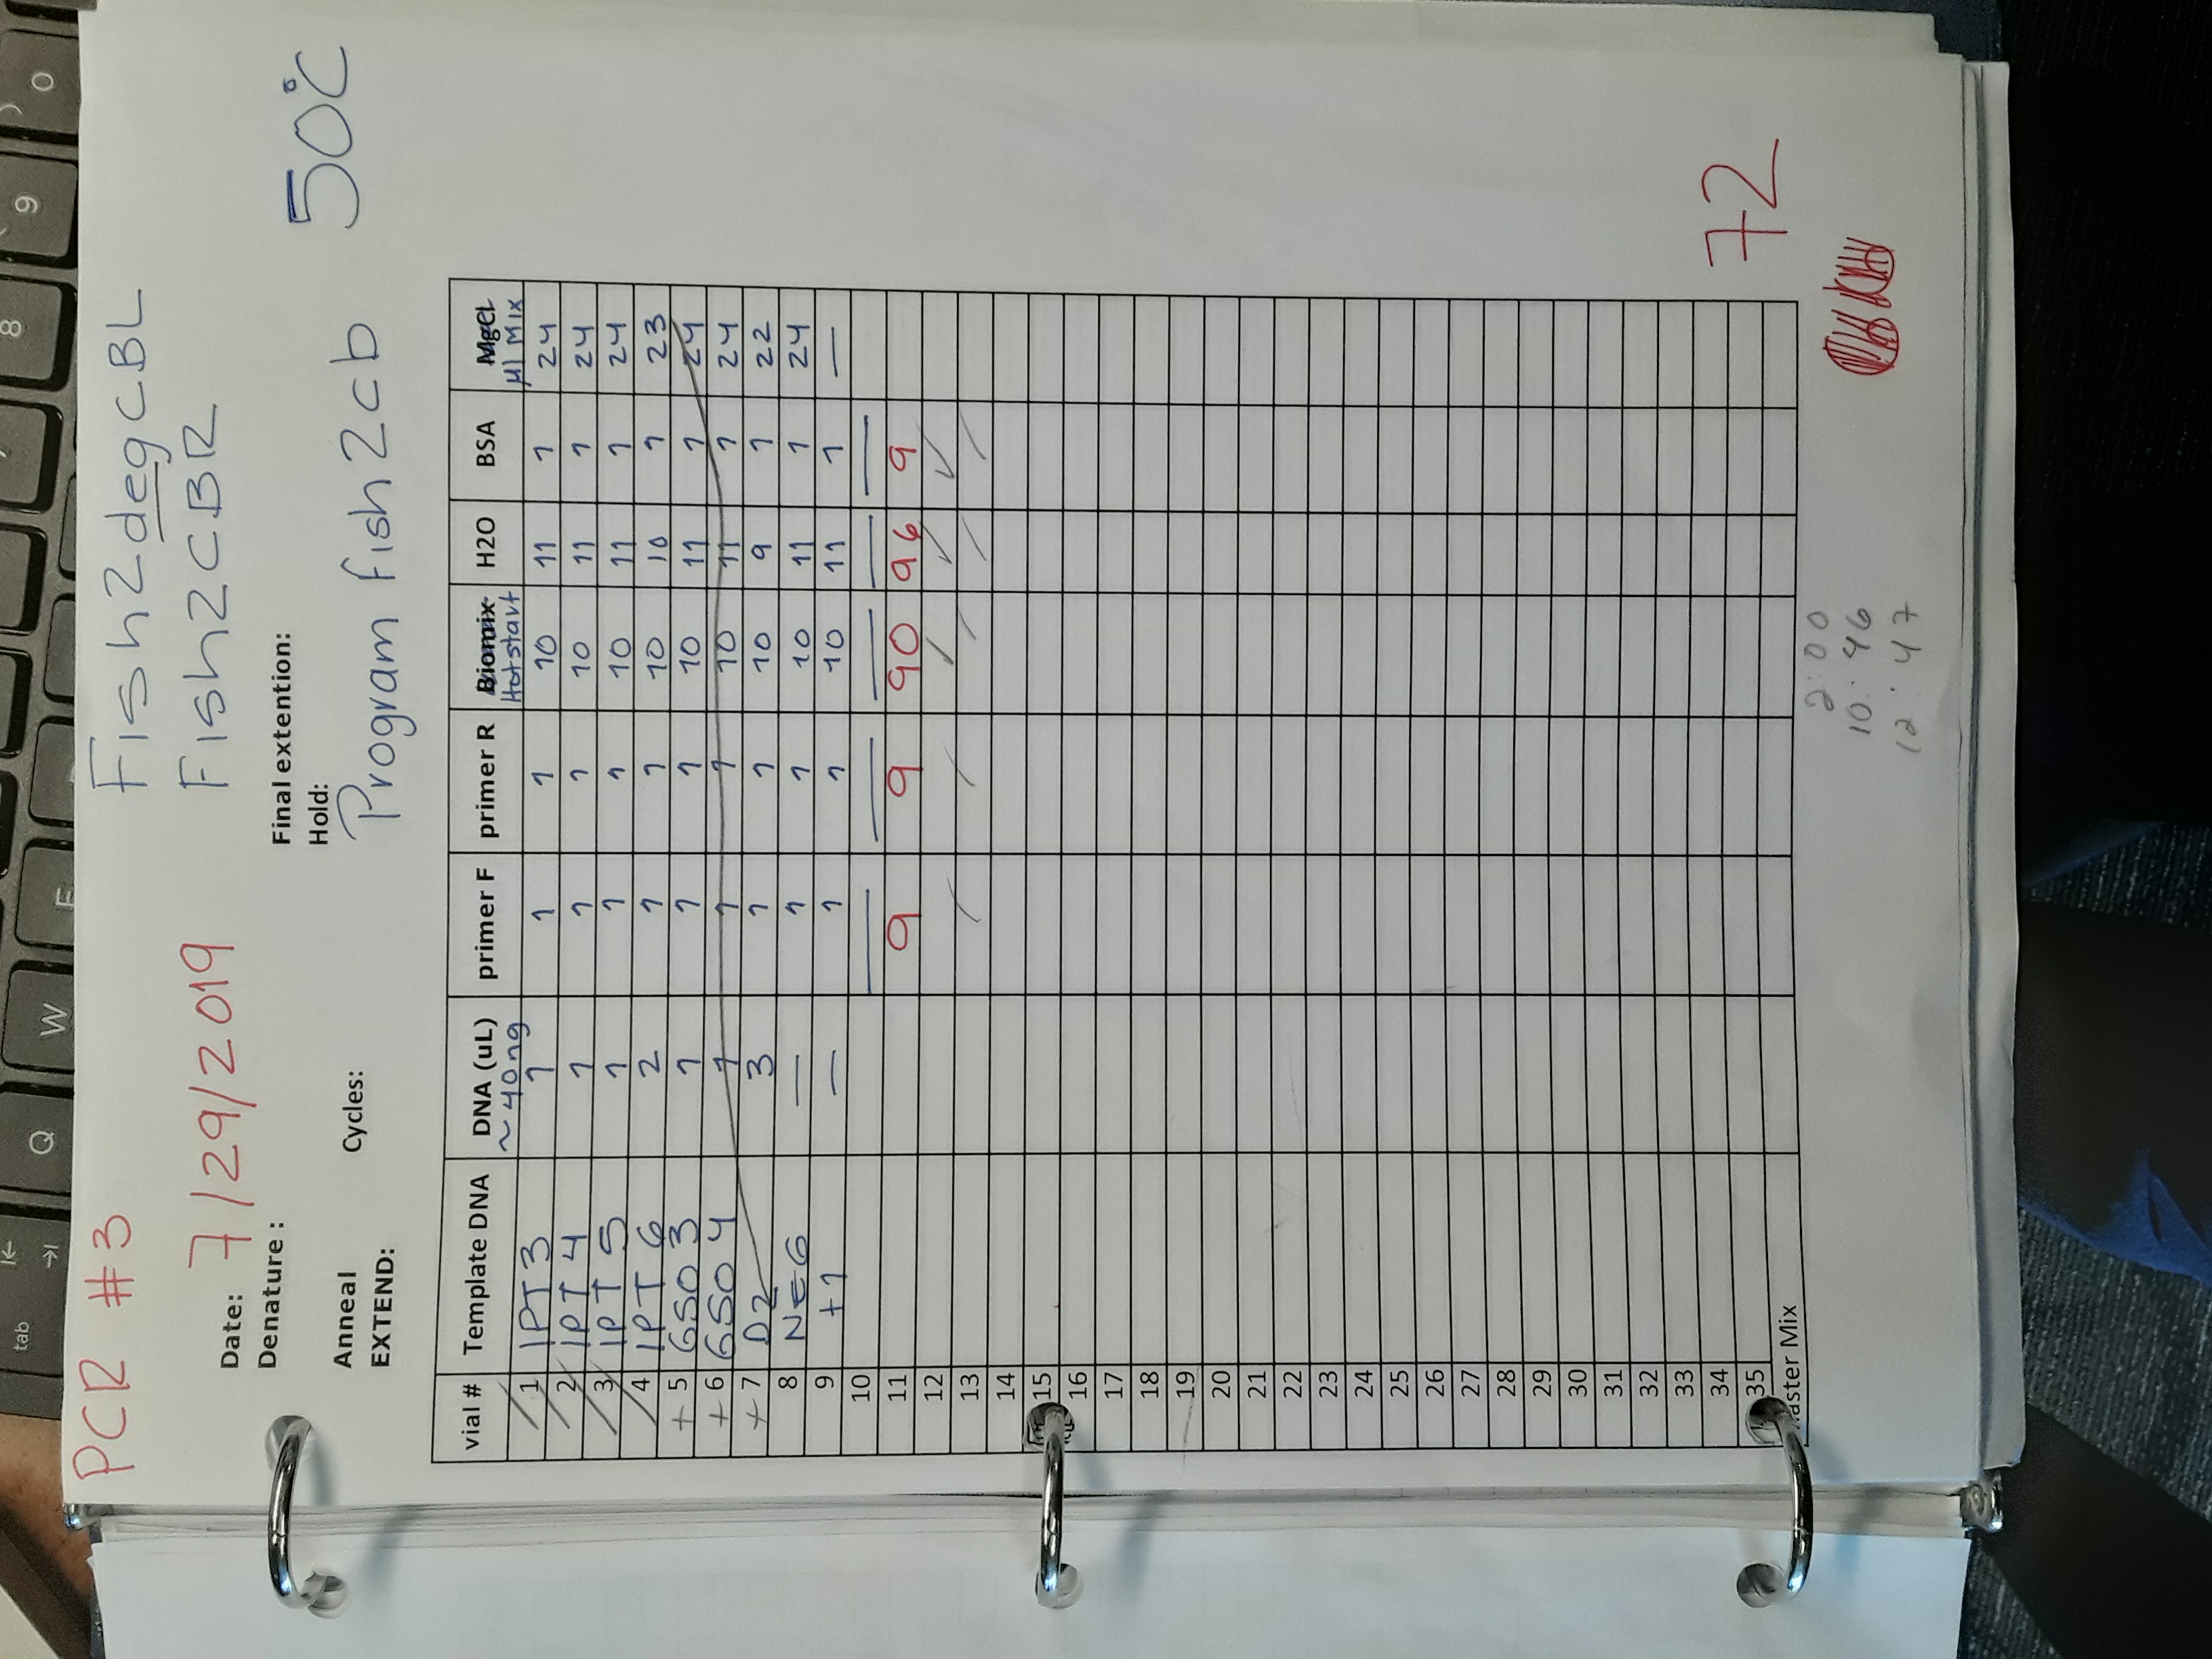 tab
Q W E 8 9 0
PCR #3
Fish2degCBL
Fish2CBR
Date: 7/29/2019
Denature :
Final extention:
Hold:
50°C
Anneal
Cycles:
EXTEND:
Program fish2cb
vial # Template DNA DNA (uL) primer F primer R Biomix H2O BSA MgCl
~40ng Hotstart µl Mix
1 IPT 3 1 1 1 10 11 1 24
2 IPT 4 1 1 1 10 11 1 24
3 IPT 5 1 1 1 10 11 1 24
4 IPT 6 2 1 1 10 10 1 23
+ 5 GSO 3 1 1 1 10 11 1 24
+ 6 GSO 4 1 1 1 10 11 1 24
+ 7 D2 3 1 1 10 9 1 22
8 NEG — 1 1 10 11 1 24
9 +1 — 1 1 10 11 1 —
10
11 9 9 90 96 9
12 ✓ ✓ ✓
13
14
15
16
17
18
19
20
21
22
23
24
25
26
27
28
29
30
31
32
33
34
72
35
aster Mix
2:00
10:46
12:47